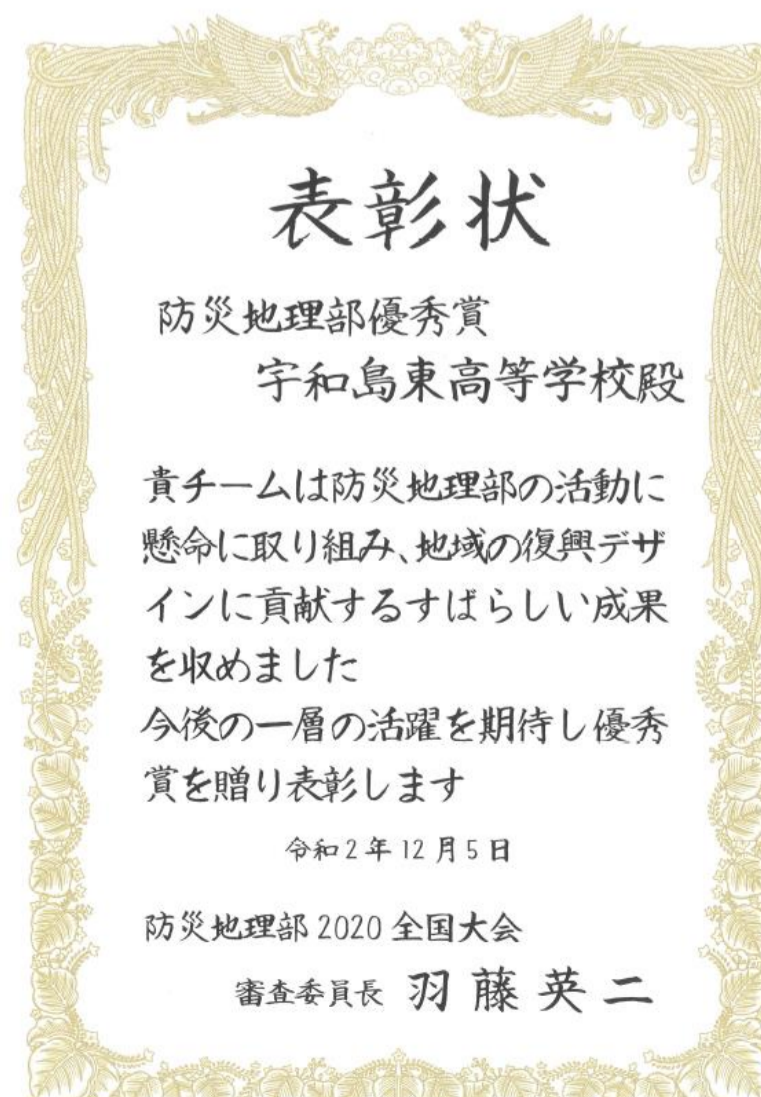 表彰状
防災地理部優秀賞
宇和島東高等学校殿
貴チームは防災地理部の活動に
懸命に取り組み、地域の復興デザ
インに貢献するすばらしい成果
を収めました
今後の一層の活躍を期待し優秀
賞を贈り表彰します
令和2年12月5日
防災地理部2020全国大会
審査委員長 羽藤英二